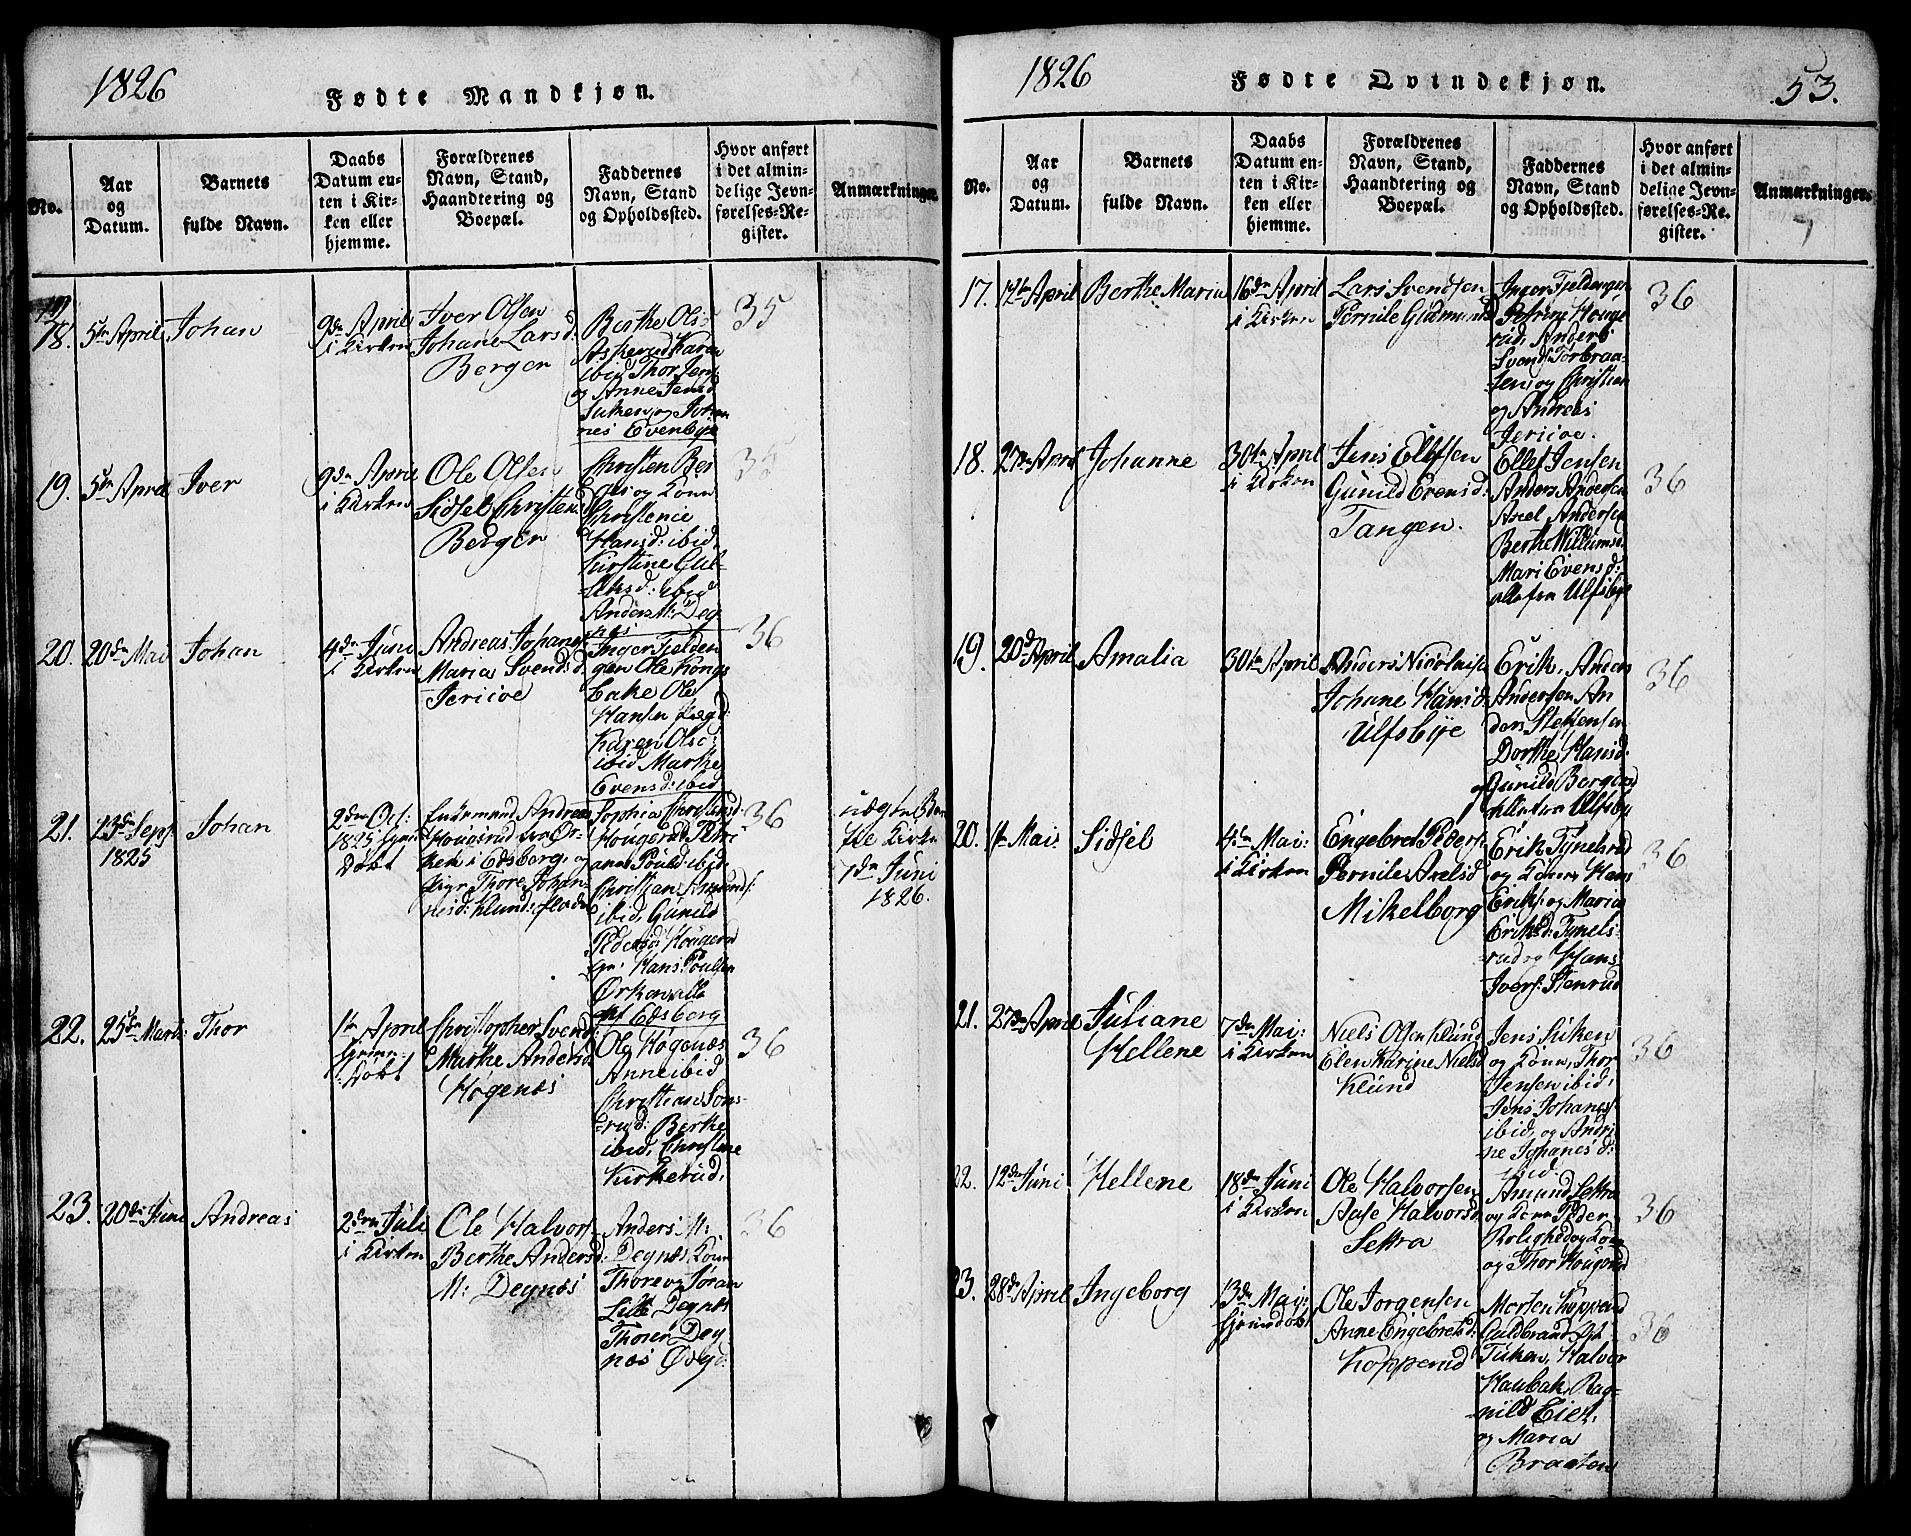 1826
Fødte Mandkjøn.
No.
Aar
og
Datum.
Barnets
fulde Navn.
Daabs
Datum en-
ten i Kir-
ken eller
hjemme.
Forældrenes
Navn, Stand,
Haandtering og
Boepæl.
Faddernes
Navn, Stand
og Opholdssted.
Hvor anført
i det almin-
delige Jevn-
førelses-Re-
gister.
Anmærkninger.
18.
5te April
Johan
9de April
i Kirken
Iver Olsen
Johane Larsd:
Berger
Berthe Ols:
Askerud Karen
ibid Thor Jens:
og Anne Jensd
Tuken og Johan
nes Evenbye
35
19.
5te April
Iver
9de April
i Kirken
Ole Olsen
Sidsel Christensd
Berger
Christen Ber
ger og Kone
Christence
Hansd: ibid
Kirstine Gul-
ibid
Anders M: Deg
næs
35
20.
20de Mai
Johan
4de Juni
i Kirken
Andreas Johans
Maria Svensd:
Jericoe
Inger Fjelden
gen Ole Kongs
bake Ole
Hansen
Karen Ols:
ibid Marthe
Evensd: ibid
36
21.
23de Sept:
1825
Johan
2den Oct:
1825 hjem
Døbt
Enkemand Andreas
Hougerud fra Ør-
ken i Edsberg, og
Pige Thore Johan
nesd: Klund:
Sophia Christensd:
Hougerud Petri
ane Poulsd: ibid,
Christian Amunds:
ibid, Gunild
Pedersd Hougerud
Hans Poulsen
Ørken alle
af Edsberg
36
uægte Barn
Kirken
7de Juni
1826.
22.
25de Marts:
Thor
1te April
hjemme
Døbt
Christopher Svends:
Marthe Andersd
Høgenæs
Ole Høgenæs
Anne ibid
Christian Søns-
rud: Berthe
ibid, Christine
Kirkerud,
36
23.
20de Juni
Andreas
2den Juli
i Kirken
Ole Halvors:
Berthe Andersd:
M: Degnæs
Anders M:
Degnæs, Kone
Thore og Søren
Lille Degnæs
Thoren Deg-
næs Øvgd:
36
1826
Fødte Qvindekjøn.
53.
No.
Aar
og
Datum.
Barnets
fulde Navn.
Daabs
Datum en-
ten i Kir-
ken eller
hjemme.
Forældrenes
Navn, Stand,
Haandtering og
Boepæl.
Faddernes
Navn, Stand
og Opholdssted.
Hvor anført
i det almin-
delige Jevn-
førelses-Re-
gister.
Anmærkninger.
17.
12te April
Berthe Maria
16de April
i Kirken
Lars Svendsen
Pernile Gudmunds
Inger Fjeldengen
Houge
rud, Anders
Svends Torbraa-
ten og Christian
og Andreas
Jericoe.
36
18.
27de April
Johanne
30te April
i Kirken
Jens Ellefsen
Gunild Evensd:
Tangen.
Ellef Jensen
Anders Andersen
Axel Andersen
Berthe Willumsd:
Mari Evensd:
alle fra Ulfsbye
36
19.
20de April
Amalia
30te April
Anders Nicolaisen
Johane Hansd:
Ulfsbye
Erik, Anders
Andersen An
ders Steffensen
Dorthe Hansd:
og Gunild Bergersd
alle fra Ulfsby
36
20.
1te Mai:
Sidsel
4de Mai:
i Kirken
Engebret Peders:
Pernile Axelsd
Mikelborg
Erik Tynelsrud
og Kone, Hans
Eriks: og Maria
Eriksd: Tynels-
rud og Hans
Ivers: Stenrud
36
21.
27de April
Juliane
Hellene
7de Mai:
i Kirken
Niels Olsen Klund
Elen Karine Nielsd
Klund
Jens Tuken
og Kone, Thor
Jensen ibid,
Jens Johanes:
ibid, og Andri
ne Johanesd:
ibid.
36
22.
12de Juni
Hellene
18de Juni
i Kirken
Ole Halvorsen
Aase Halvorsd
Setra
Amund Setra
og Kone Peder
Rolighed og Kone
og Thor Hougerud
36
23.
28de April
Ingeborg
13de Mai:
hjemdøbt
Ole Jorgensen
Anne Engebretsd:
Kopperud
Morten Kopperud
Guldbrand
Tuken, Halvor
Haubak, Rag-
nild Eier,
og Maria
Braaten
36